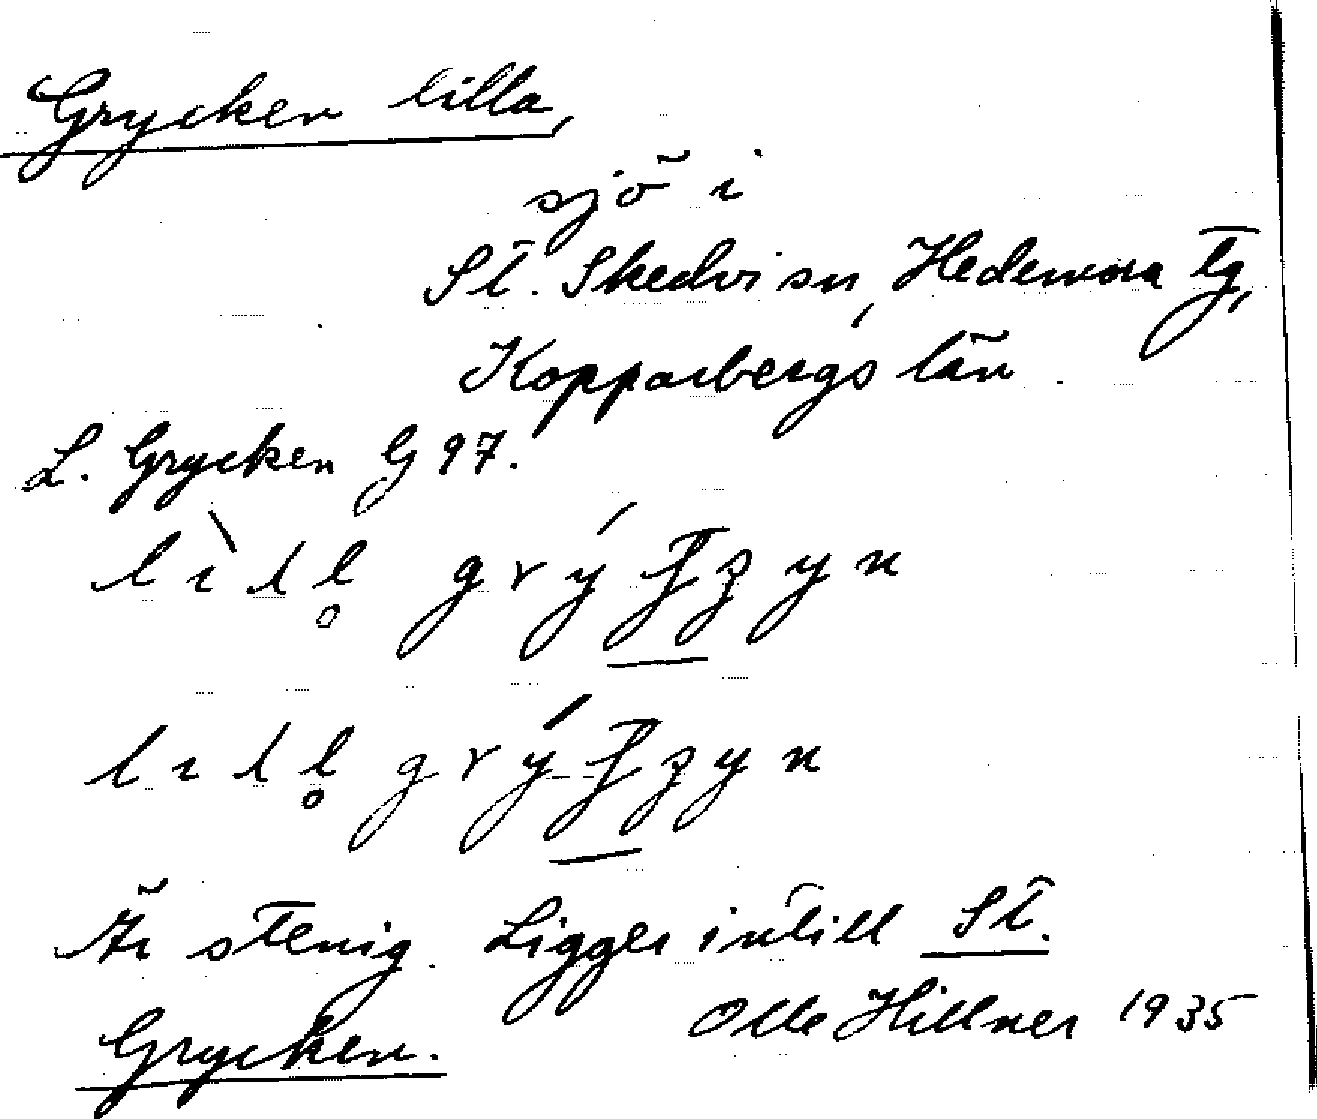 Grycken lilla,
sjö i
St. Skedvi sn, Hedemora tg,
Kopparbergs län.
L. Grycken G 97.
Är stenig. Ligger intill St.
Grycken.
Olle Hillner 1935